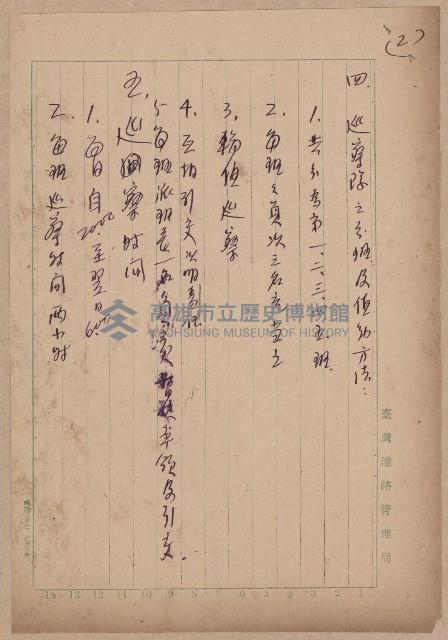 (2)
四. 巡察隊之分班及值勤方法：
1. 共分為第一、二、三、四、五班.
2. 每班之員次三名
3. 輪值巡察
4. 互切引交以明責任
5. 每班派班長一名負責 率領及引交.
五. 巡察時間
1. 每日自2000至翌日600
2. 每班巡察時間兩小時
高雄市立歷史博物館
KAOHSIUNG MUSEUM OF HISTORY
臺灣鐵路管理局
14 13 12 11 10 9 8 7 6 5 4 3 2 1